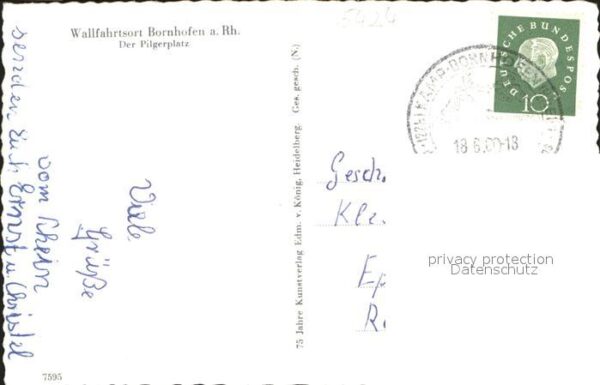 Wallfahrtsort Bornhofen a. Rh.
Der Pilgerplatz
5424
Viele
Grüße
vom Rhein
senden Euch Ernst u Christel
75 Jahre Kunstverlag Edm. v. König, Heidelberg. Ges. gesch. (N)
7595
DEUTSCHE BUNDESPOST
10
KAMP-BORNHOFEN
18.6.60-18
Gesch.
Klz.
Ep
R.
privacy protection
Datenschutz